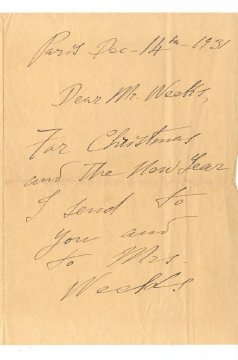 Paris Dec - 14th - 1931
Dear Mr. Weeks,
For Christmas
and the New Year
I send to
you and
to Mrs.
Weeks.